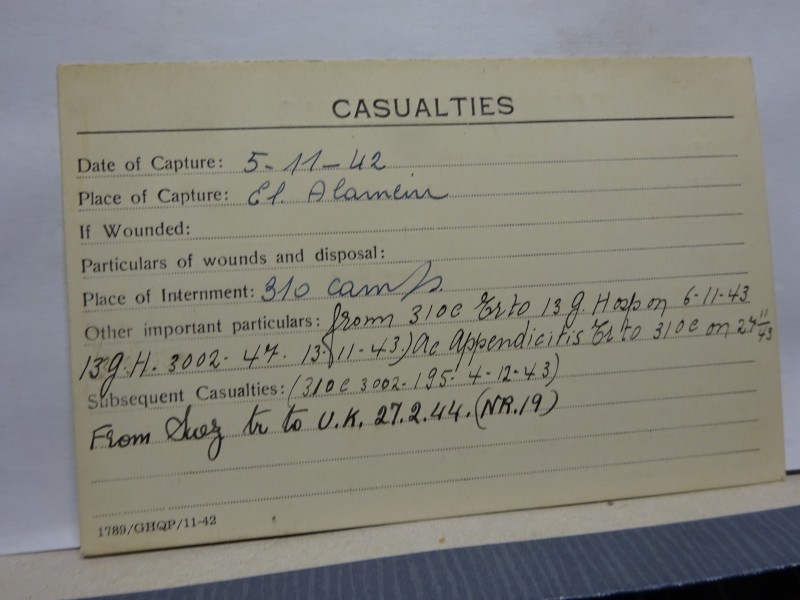 CASUALTIES
Date of Capture: 5-11-42
Place of Capture: El. Alamein
If Wounded:
Particulars of wounds and disposal:
Place of Internment: 310 camp
Other important particulars: from 310C Tr to 13 G. Hosp on 6-11-43
(13 G.H. 3002-47. 13-11-43) Ac Appendicitis Tr to 310C on 27/11/43
Subsequent Casualties: (310C 3002-195- 4-12-43)
From Suez tr to U.K. 27.2.44. (NR.19)
1789/GHQP/11-42